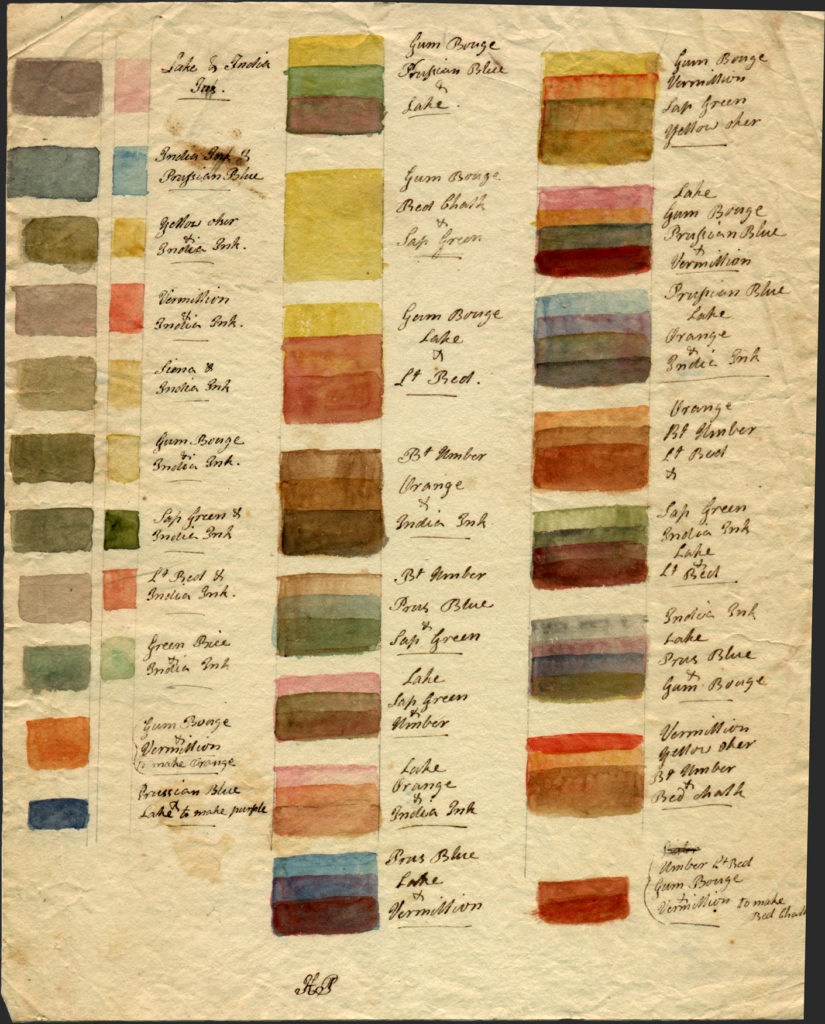 Lake & India
Ink.
India Ink &
Prussian Blue
Yellow oker
&
India Ink.
Vermillion
&
India Ink.
Siena &
India Ink
Gum Bouge
&
India Ink.
Sap Green &
India Ink
Lt Red &
India Ink.
Green Bice
&
India Ink
Gum Bouge
&
Vermillion
to make Orange
Prussian Blue
&
Lake to make purple
Gum Bouge
Prussian Blue
&
Lake.
Gum Bouge
Red Chalk
&
Sap Green
Gum Bouge
Lake
&
Lt Red.
Bt Umber
Orange
&
India Ink
Bt Umber
Prus Blue
&
Sap Green
Lake
Sap Green
&
Umber
Lake
Orange
&
India Ink
Prus Blue
Lake
&
Vermillion
HP
Gum Bouge
Vermillion
Sap Green
Yellow oker
Lake
Gum Bouge
Prussian Blue
&
Vermillion
Prussian Blue
Lake
Orange
&
India Ink
Orange
Bt Umber
Lt Red
&
Sap Green
India Ink
Lake
&
Lt Red
India Ink
Lake
Prus Blue
&
Gum Bouge
Vermillion
Yellow oker
Bt Umber
&
Red chalk
Umber Lt Red
Gum Bouge
&
Vermillion to make
Red Chalk